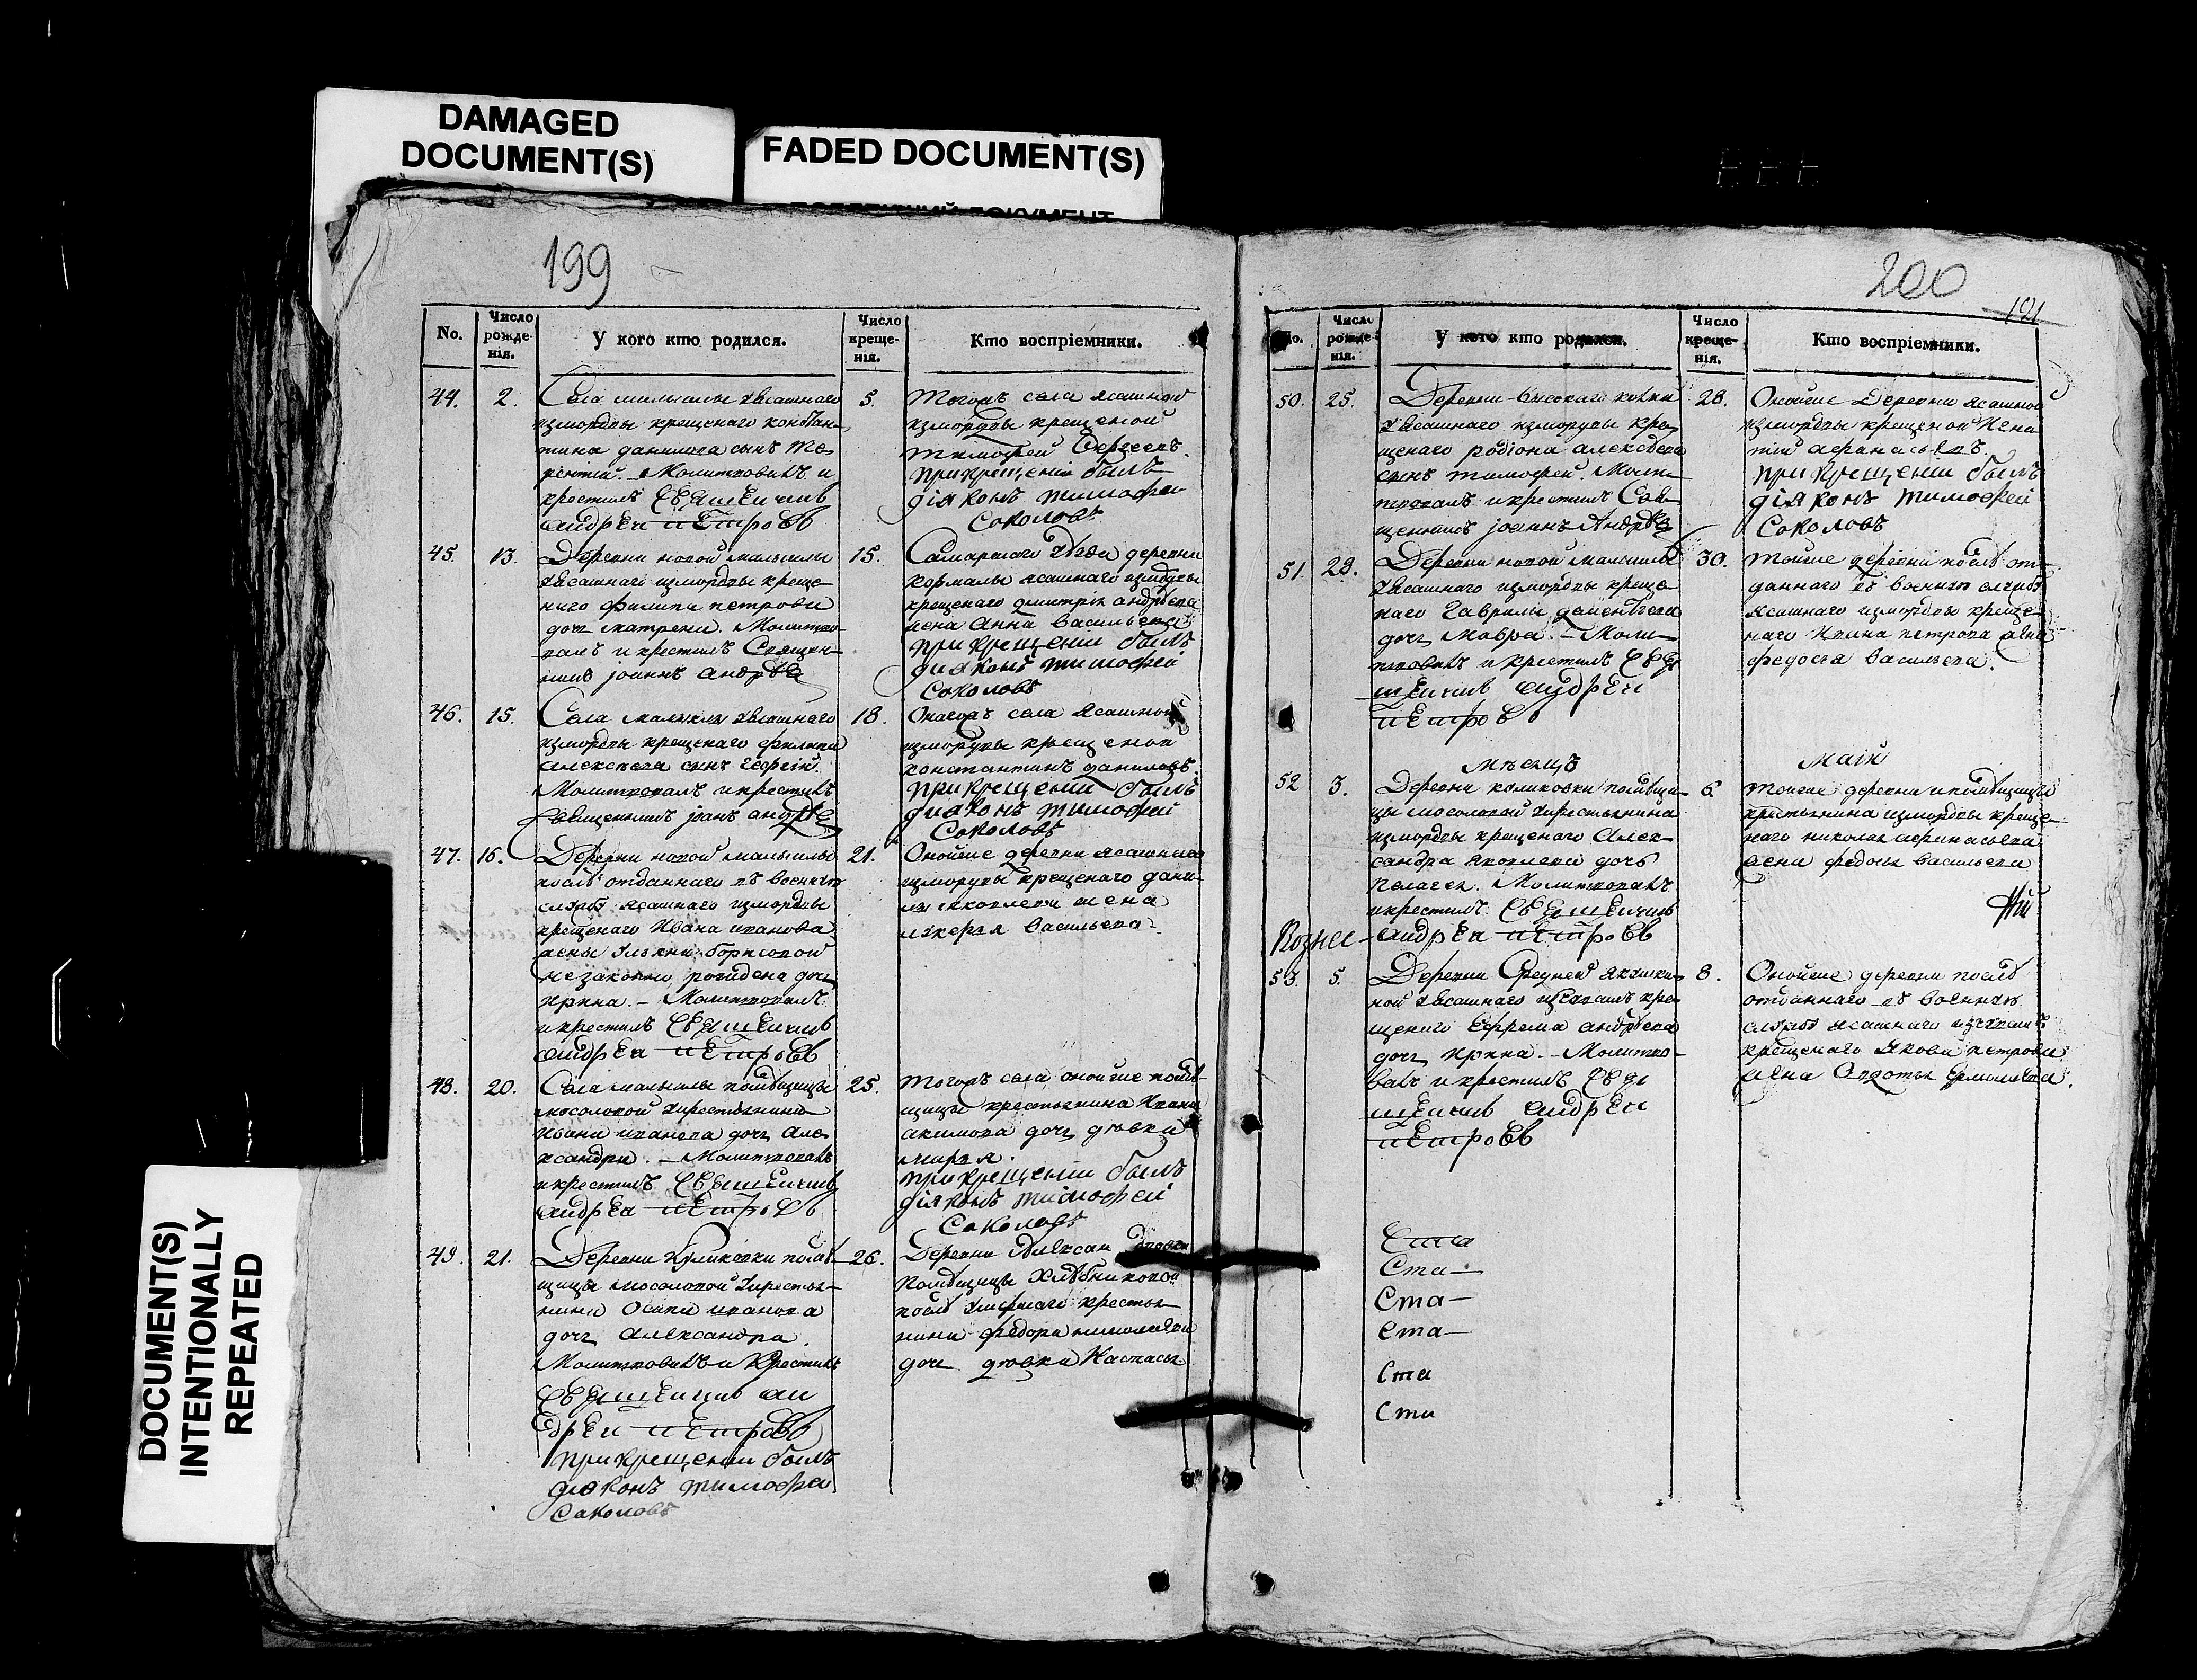 DAMAGED
DOCUMENT(S)
FADED DOCUMENT(S)
DOCUMENT(S)
INTENTIONALLY
REPEATED
199
No.
Число рожденія.
У кого кто родился.
Число крещенія.
Кто воспріемники.
44. 2.
Села
крещенаго констан-
тина данилова сынъ те-
рентій. Молитвовалъ и
крестилъ священникъ
андреи петровъ
5.
тогожъ села ясашной
крещеной
тимофей Сергеевъ.
при крещеніи былъ
діяконъ тимофеи
Соколовъ
45. 13.
Деревни новой малыклы
ясашнаго измордвы креще-
наго филипа петрова
дочь матрена. Молитво-
валъ и крестилъ Священ-
никъ іоаннъ андреевъ
15.
деревни
кармалы ясашнаго измордвы
крещенаго дмитрія андреева
жена анна васильева
при крещеніи былъ
діяконъ тимофей
Соколовъ
46. 15.
Села малыклы ясашнаго
измордвы крещенаго филипа
алексеева сынъ георгій.
Молитвовалъ и крестилъ
священникъ іоанъ андреевъ
18.
Оногожъ села ясашной
измордвы крещеной
константинъ даниловъ.
при крещеніи былъ
діяконъ тимофей
Соколовъ
47. 16.
Деревни новой малыклы
после отданнаго въ военную
службу ясашнаго измордвы
крещенаго Ивана иванова
жены ульяны борисовой
незаконно рождена дочь
ирина. – Молитвовалъ
и крестилъ священникъ
андреи петровъ
21.
Оной же деревни ясашнаго
измордвы крещенаго дани-
лы яковлева жена
лукерья васильева.
48. 20.
Села малыклы помещицы
мосоловой крестьянина
Ивана иванова дочь алек-
сандра. – Молитвовалъ
и крестилъ священникъ
андреи петровъ
25.
тогожъ села оной же поме-
щицы крестьянина Ивана
акимова дочь девка
марья.
при крещеніи былъ
діяконъ тимофей
Соколовъ
49. 21.
Деревни куликовки поме-
щицы мосоловой крестья-
нина осипа иванова
дочь александра.
Молитвовалъ и крестилъ
священникъ ан
дреи петровъ
при крещеніи былъ
діяконъ тимофеи
Соколовъ
26.
Деревни
помещицы хлебниковой
после умершаго крестья-
нина федора николаева
дочь девка Настасья
200
121
No.
Число рожденія.
У кого кто родился.
Число крещенія.
Кто воспріемники.
50. 25.
Деревни высокаго колка
ясашнаго измордвы кре-
щенаго родіона алексеева
сынъ тимофей. Моли-
твовалъ и крестилъ Свя-
щенникъ іоаннъ Андреевъ
28.
Оной же деревни ясашной
измордвы крещеной Игна-
тій афанасьевъ.
при крещеніи былъ
діяконъ тимофей
Соколовъ
51. 28.
Деревни новой малыклы
ясашнаго измордвы креще-
наго гаврилы дементьева
дочь мавра. – Моли-
твовалъ и крестилъ свя
щенникъ андреи
петровъ
30.
той же деревни после от-
даннаго въ военную службу
ясашнаго измордвы креще-
наго Ивана петрова жена
федосья васильева.
месяцъ
маій
52 3.
Деревни куликовки помещи-
цы мосоловой крестьянина
измордвы крещенаго алек-
сандра яковлева дочь
пелагея. Молитвовалъ
и крестилъ священникъ
андреи петровъ
6.
той же деревни и помещицы
крестьянина измордвы креще-
наго николая афанасьева
жена федосья васильева
Вознес-
53. 5.
Деревни Средней якушки-
ной ясашнаго изчувашъ кре-
щенаго ефрема андреева
дочь ирина. – Молитво-
валъ и крестилъ свя
щенникъ андреи
петровъ
8.
Оной же деревни после
отданнаго въ военную
службу ясашнаго изчувашъ
крещенаго Якова петрова
жена авдотья ермолаева.
Ста
Ста –
Ста –
Ста –
Ста
Ста